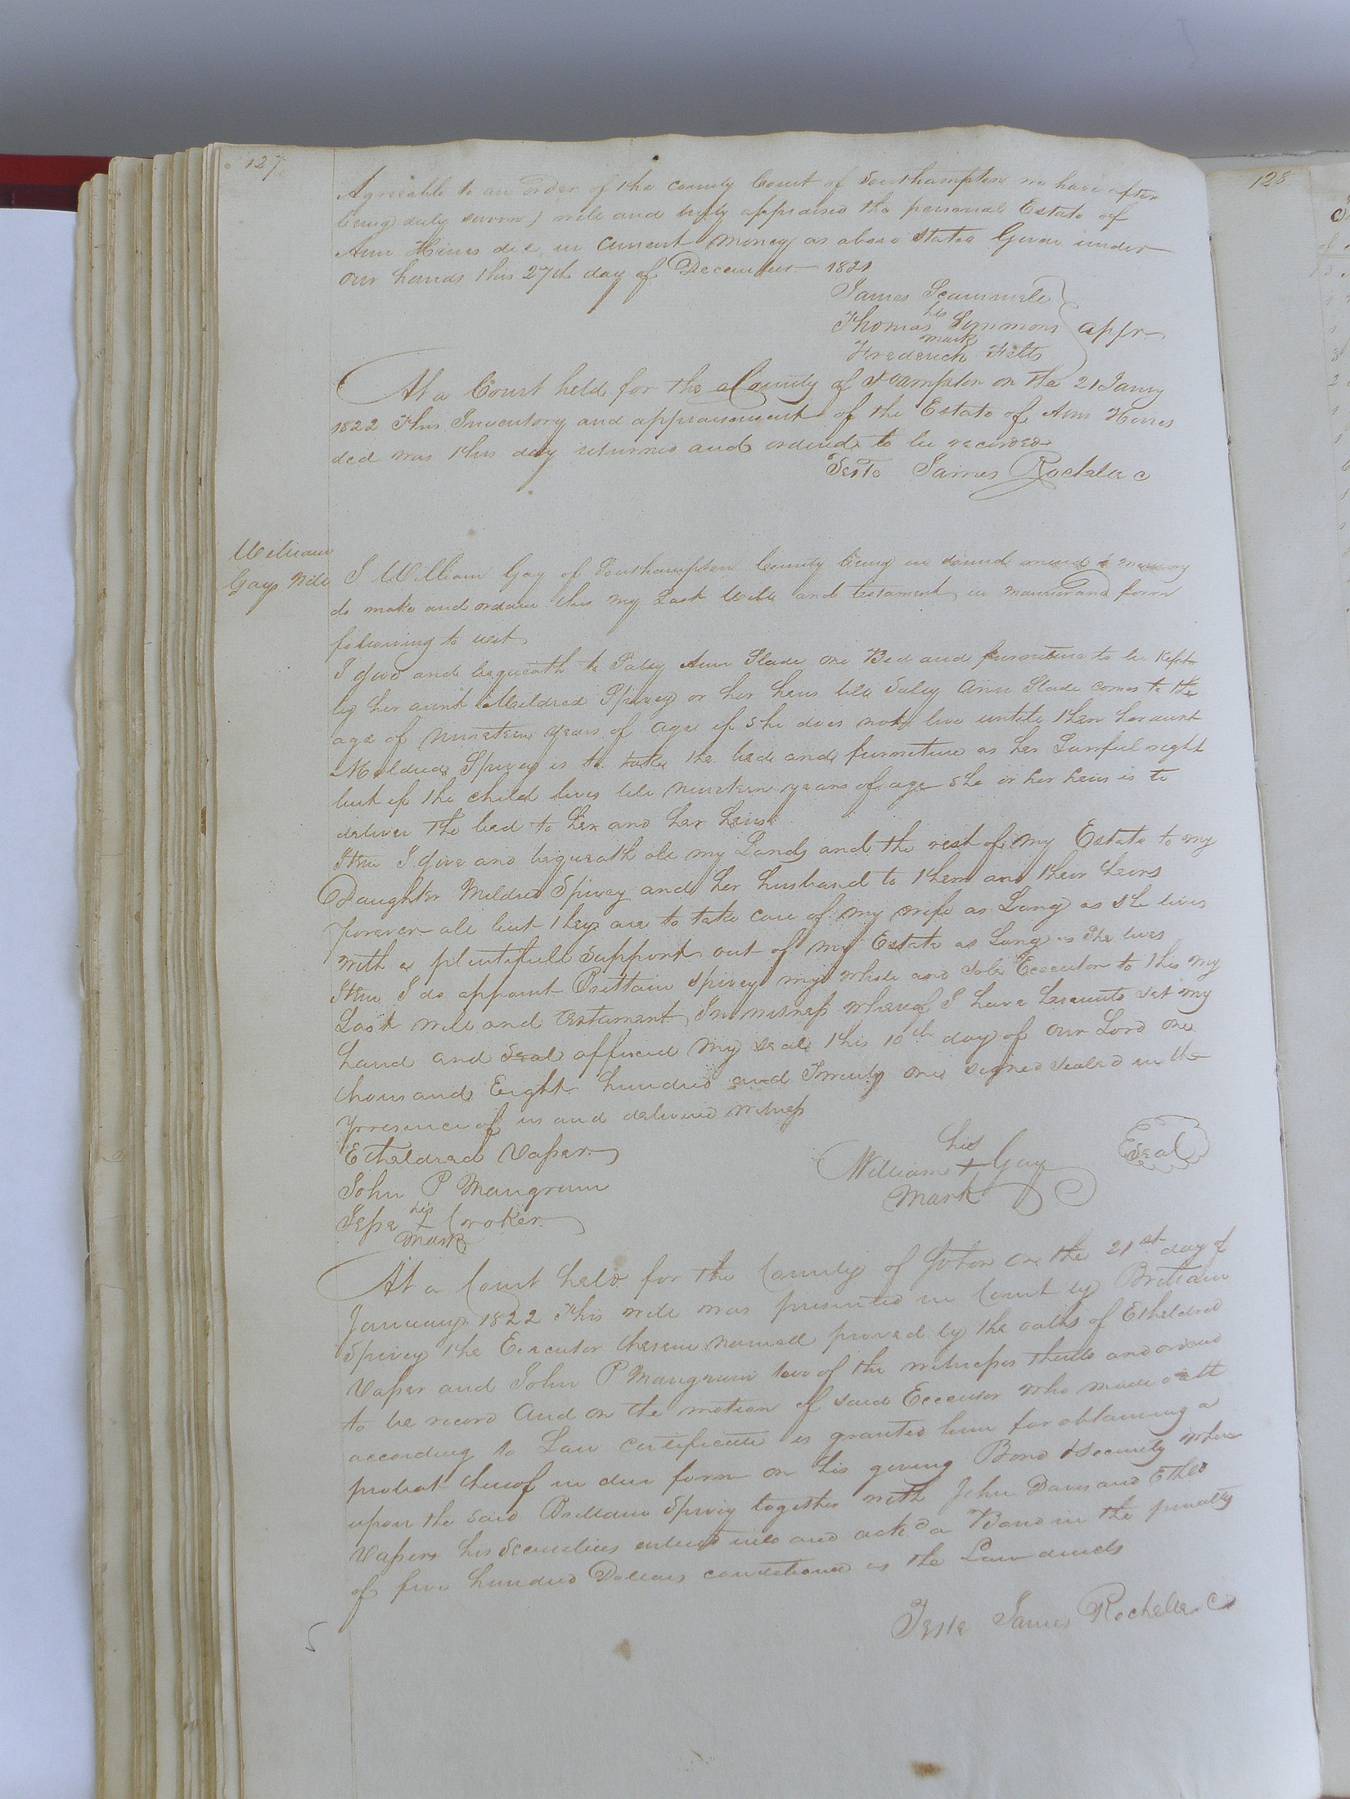 127
Agreeable to an order of the County Court of Southampton we have after
being duly sworn) well and truly appraised the personal Estate of
Ann Hines decd in Current Money as above stated Given under
our hands this 27th day of December 1821
James Scammele
his
Thomas Simmons appr
mark
Frederick Felts
At a Court held for the County of SHampton on the 21 Janry
1822 This Inventory and appraisement of the Estate of Ann Hines
decd was this day returned and ordered to be recorded
Teste James Rochelle C
William
Gays Will
I William Gay of Southampton County being in sound mind & memory
do make and ordain this my Last Will and testament in manner and form
following to wit
I give and bequeath to Saley Ann Slade one Bed and furniture to be kept
by her aunt Mildred Spivey or her heirs till Saley Ann Slade comes to the
age of nineteen years of age if she does not live until then her aunt
Mildred Spivey is to take the bed and furniture as her Lawful right
but if the child lives till nineteen years of age she or her heirs is to
deliver the bed to her and her heirs
Item I give and bequeath all my Lands and the rest of my Estate to my
Daughter Mildred Spivey and her husband to them and their heirs
forever all but they are to take care of my wife as Long as she lives
with a plentifull support out of my Estate as Long as she lives
Item I do appoint Brittain Spivey my whole and sole Executor to this my
Last will and testament In witness whereof I have hereunto set my
hand and seal affixed my seal this 10th day of our Lord one
thousand Eight hundred and Twenty one signed sealed in the
presence of us and delivered witness
Etheldred Vaser
John P Mangrum
his
Jesse + Croker
mark
his
William + Gay
mark
Seal
At a Court held for the County of Sohton on the 21st day of
January 1822 This will was presented in Court by Brittain
Spivey the Executor therein named proved by the oaths of Etheldred
Vaser and John P Mangrum two of the witnesses thereto and ordered
to be record And on the motion of said Executor who made oath
according to Law certificate is granted him for obtaining a
probat thereof in due form on his giving Bond & security where
upon the said Brittain Spivey together with John Davis and Ethed
Vasers his securities entered into and ackd a Bond in the penalty
of five hundred Dollars conditioned as the Law directs
Teste James Rochelle C
128